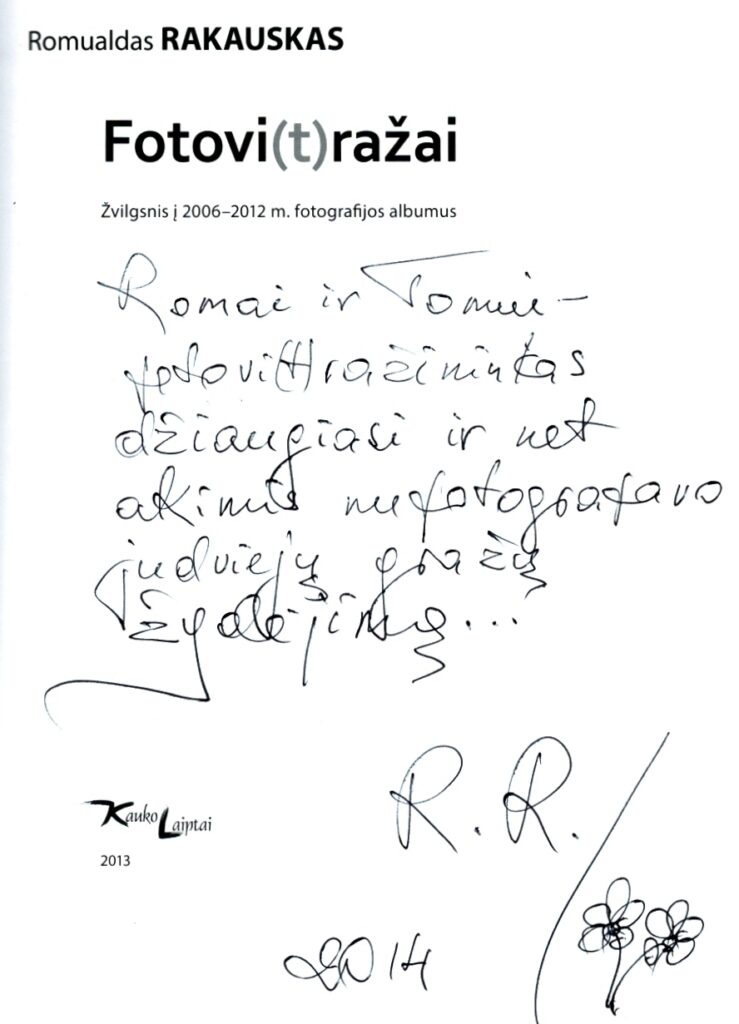 Romualdas RAKAUSKAS
Fotovi(t)ražai
Žvilgsnis į 2006–2012 m. fotografijos albumus
Romai ir Tomui –
fotovi(t)ražininkas
džiaugiasi ir net
akimis nufotografavo
judviejų gražų
žydėjimą...
R. R.
Kauko Laiptai
2013
2014